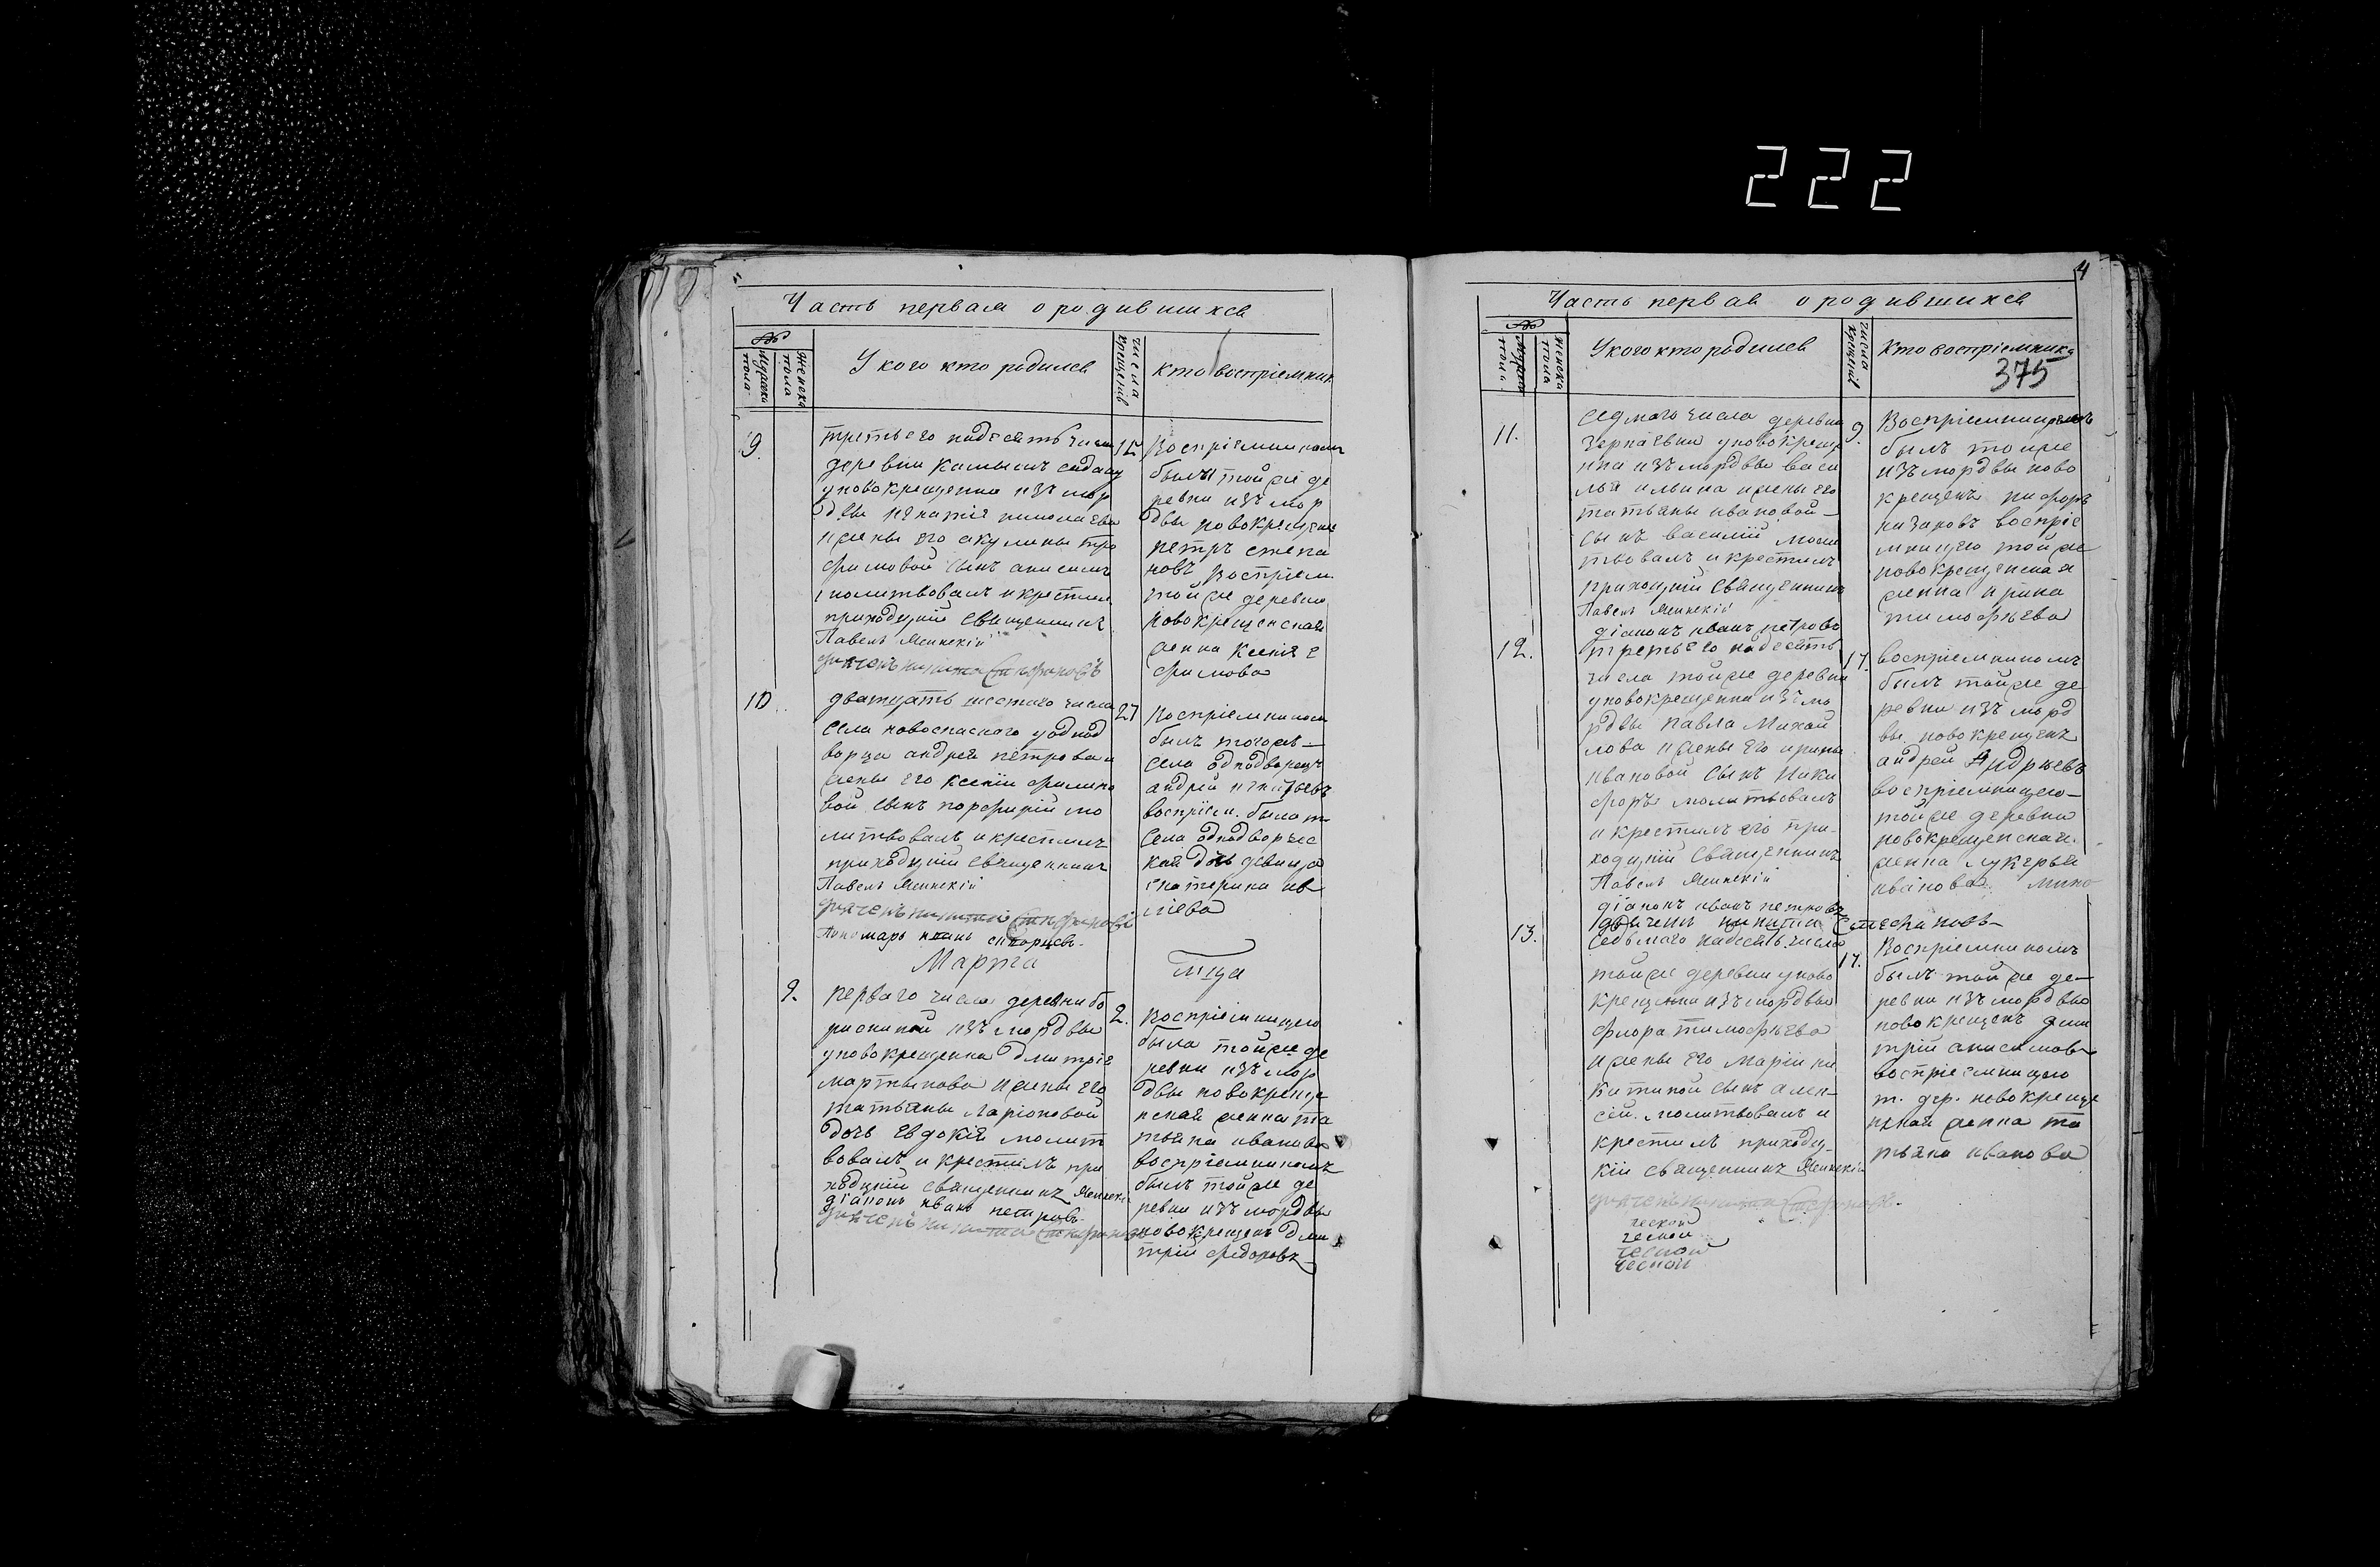 222
Часть первая о родившихся
№
Мужеска пола
Женска пола
У кого кто родился
числа крещенія
кто воспріемник
9.
третьего надесять числа
деревни Камышъ садаку
у новокрещенна изъ мор
двы игнатія николаева
и жены его акулины тро
фимовой сынъ анисимъ
молитвовалъ и крестил
приходцкій Священникъ
Павелъ Ясинскій
дьячекъ никита Стефановъ
15
Воспріемником
былъ той же де
ревни изъ мор
двы новокрещенъ
петръ степа
новъ воспріем.
той же деревни
новокрещенская
женка ксенія е
фимова
10
дватцать шестаго числа
Села новоспаского у однод
ворца андрея петрова и
жены его ксеніи филипо
вой сынъ порфирій мо
литвовалъ и крестилъ
приходцкій священникъ
Павелъ Ясинскій
дьячекъ никита Стефановъ
Пономарь иванъ
27
Воспріемником
былъ тогожъ
Села однодворецъ
андрей игнатьевъ
воспріем. была т.
Села однодворчес
кая дочь девица
екатерина ив
лева
Марта
мца
9.
перваго числа деревни бо
рискиной изъ мордвы
у новокрещенна дмитрія
мартынова и жены его
татьяны ларіоновой
дочь евдокія молит
вовалъ и крестилъ при
ходцкій священникъ Ясинскій
діаконъ иванъ петровъ
дьячекъ никита Стефановъ
2.
воспріемницею
была той же де
ревни изъ мор
двы новокреще
нская женка та
тьяна иванова
воспріемникомъ
былъ той же де
ревни изъ мордвы
новокрещенъ дми
трій федоровъ
4
Часть первая о родившихся
№
Мужеска пола
Женска пола
У кого кто родился
числа крещеніи
Кто воспріемника
375
11.
Седмаго числа деревни
у новокреще
нна изъ мордвы васи
лья ильина и жены его
татьяны ивановой
сынъ василій моли
твовалъ и крестилъ
приходцкій Священникъ
Павелъ Ясинскій
діаконъ иванъ петровъ
9.
Воспріемникомъ
былъ той же
изъ мордвы ново
крещенъ никифоръ
назаровъ воспріе
мницею той же
новокрещенская
женка ирина
тимофѣева
12.
третьего надесять
числа той же деревни
у новокрещенна изъ мо
рдвы Павла Михай
лова и жены его ирины
ивановой Сынъ Ники
форъ молитвовалъ
и крестилъ его при-
ходцкій Священникъ
Павелъ Ясинскій
діаконъ иванъ петровъ
дьячекъ никита Стефановъ
17.
воспріемникомъ
былъ той же де
ревни изъ морд
вы новокрещенъ
андрей Андреевъ
воспріемницею
той же деревни
новокрещенская
женка лукерья
иванова
13.
Седьмаго надесять числа
той же деревни у ново
крещенна изъ мордвы
флора тимофѣева
и жены его Маріи ни
китиной сынъ алек
сѣй. молитвовалъ и
крестилъ приходц
кій священникъ Ясинскій
дьячекъ никита Стефановъ.
17.
Воспріемникомъ
былъ той же де-
ревни изъ мордвы
новокрещенъ дми
трій анисимовъ
воспріемницею
т. дер. новокреще
нская женка та
тьяна иванова